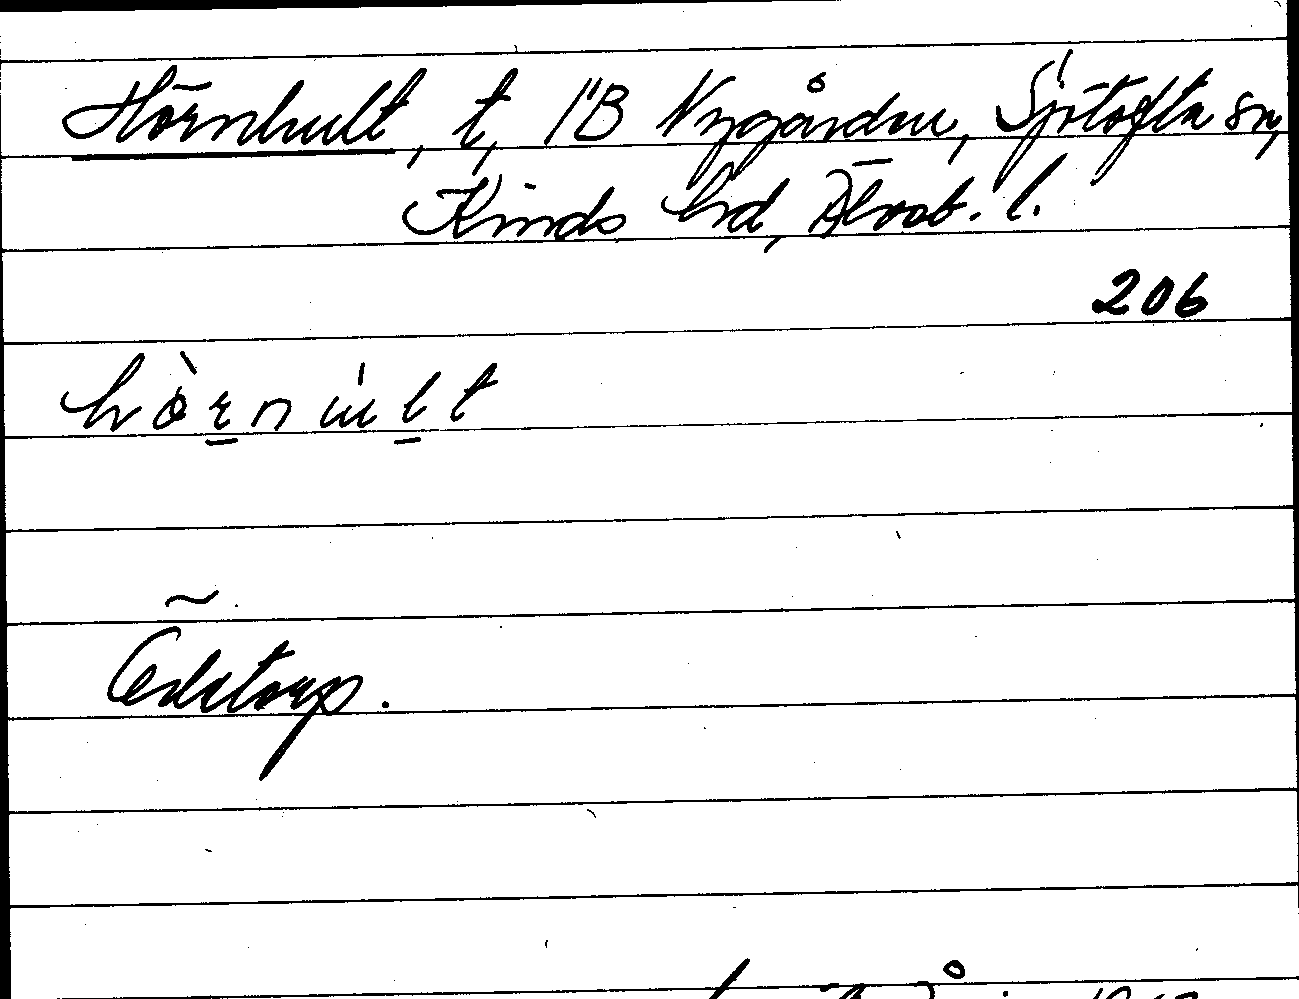 Hörnhult, t, 1"B Nygården, Sjötofta sn,
Kinds hd, Älvsb. l.
206
hö̀rnúlt
Ödetorp.